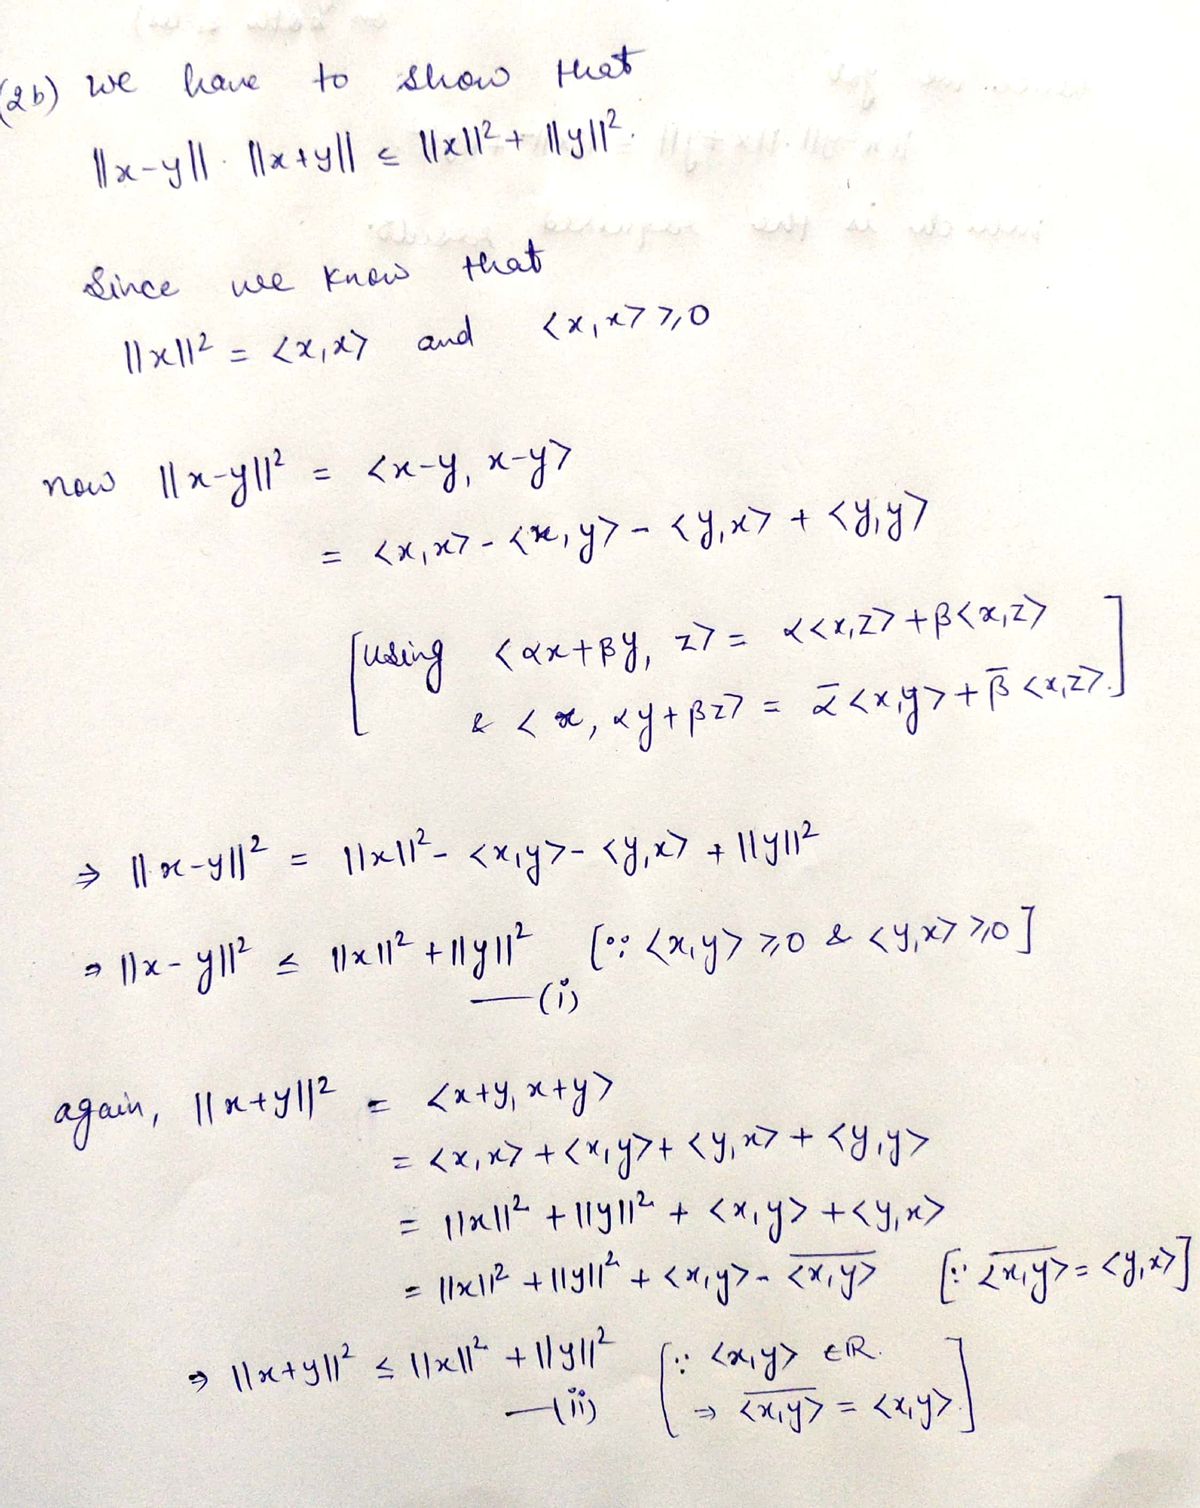 (2b) we have to show that
||x-y|| · ||x+y|| ≤ ||x||² + ||y||².
Since we know that
||x||² = <x,x> and <x,x> ≥ 0
now ||x-y||² = <x-y, x-y>
= <x,x> - <x,y> - <y,x> + <y,y>
[using <αx+βy, z> = α<x,z> + β<x,z>
& <x, αy+βz> = ᾱ<x,y> + β̄<x,z>.]
⇒ ||x-y||² = ||x||² - <x,y> - <y,x> + ||y||²
⇒ ||x-y||² ≤ ||x||² + ||y||² [∵ <x,y> ≥ 0 & <y,x> ≥ 0]
—(i)
again, ||x+y||² = <x+y, x+y>
= <x,x> + <x,y> + <y,x> + <y,y>
= ||x||² + ||y||² + <x,y> + <y,x>
= ||x||² + ||y||² + <x,y> - \overline{<x,y>} [∵ \overline{<x,y>} = <y,x>]
⇒ ||x+y||² ≤ ||x||² + ||y||² [∵ <x,y> ∈ R.
—(ii) ⇒ \overline{<x,y>} = <x,y>.]